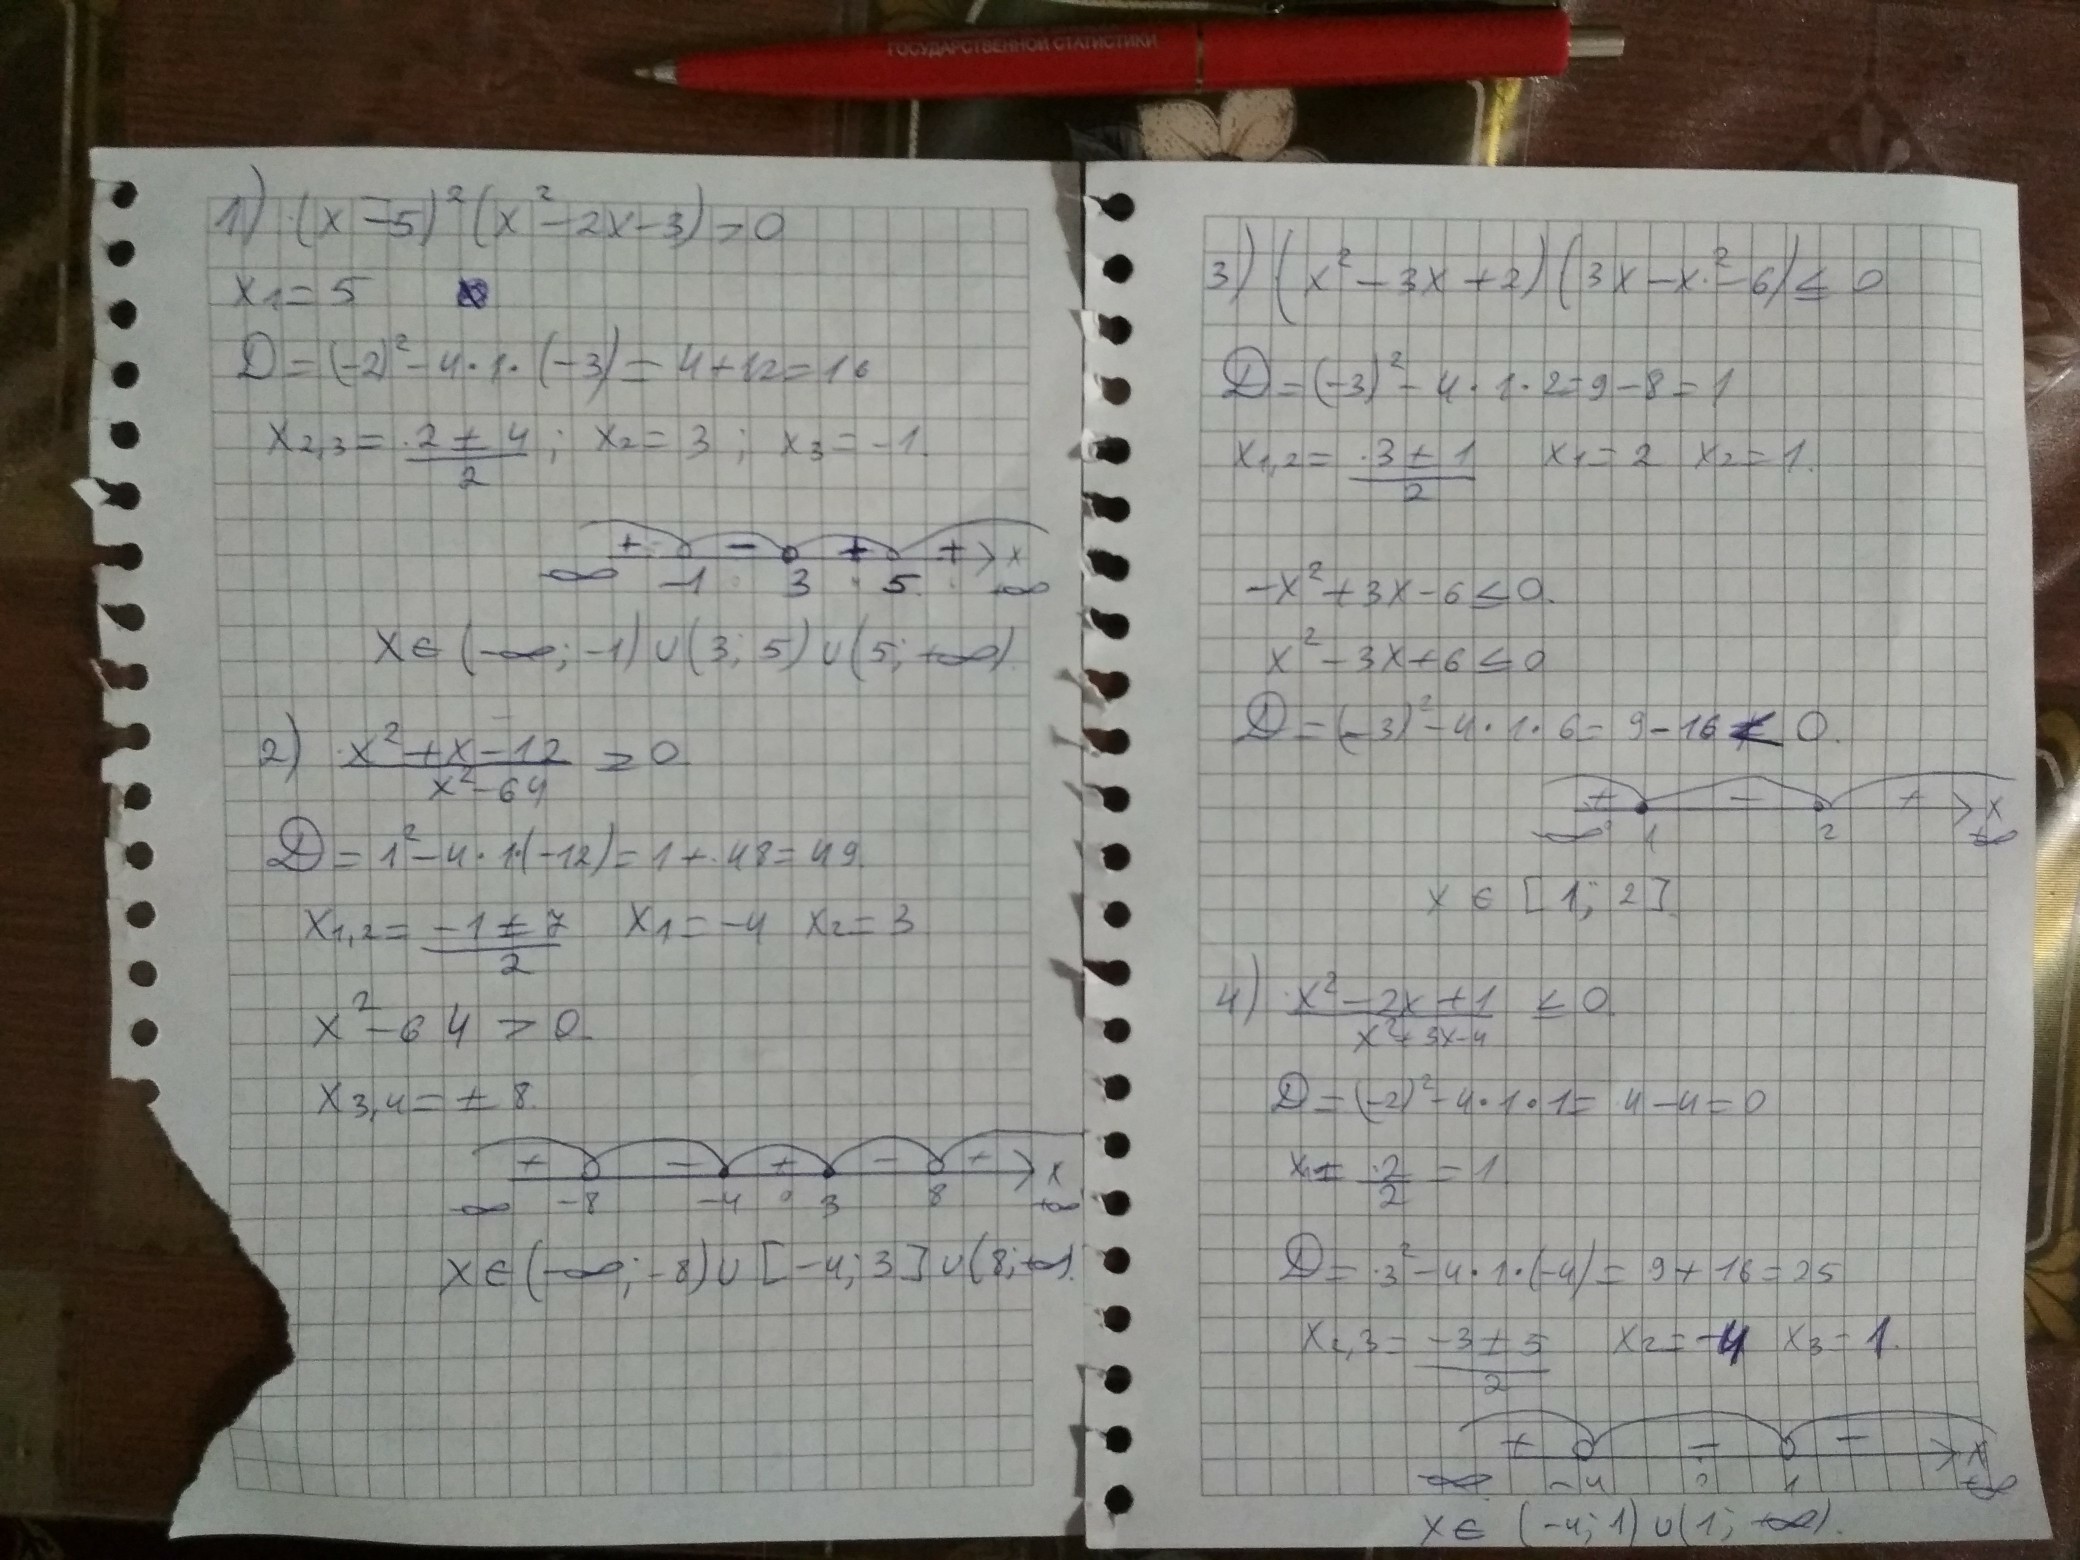 ГОСУДАРСТВЕННОЙ СТАТИСТИКИ
1) (x-5)² (x²-2x-3) > 0
x₁ = 5
D = (-2)² - 4·1·(-3) = 4+12 = 16
x₂,₃ = (2 ± 4)/2 ; x₂ = 3 ; x₃ = -1.
+ - + + x
-∞ -1 3 5 +∞
x ∈ (-∞; -1) ∪ (3; 5) ∪ (5; +∞).
2) (x²+x-12)/(x²-64) ≥ 0
D = 1² - 4·1·(-12) = 1+48 = 49.
x₁,₂ = (-1 ± 7)/2 x₁ = -4 x₂ = 3
x² - 64 > 0.
x₃,₄ = ± 8.
+ - + - + x
-∞ -8 -4 3 8 +∞
x ∈ (-∞; -8) ∪ [-4; 3] ∪ (8; +∞).
3) (x² - 3x + 2) (3x - x² - 6) ≤ 0
D = (-3)² - 4·1·2 = 9-8 = 1
x₁,₂ = (3 ± 1)/2 x₁ = 2 x₂ = 1.
-x² + 3x - 6 ≤ 0.
x² - 3x + 6 ≤ 0
D = (-3)² - 4·1·6 = 9-16 < 0.
+ - + x
-∞ 1 2 +∞
x ∈ [1; 2].
4) (x² - 2x + 1)/(x² + 3x - 4) ≤ 0
D = (-2)² - 4·1·1 = 4-4 = 0
x₁ = 2/2 = 1
D = 3² - 4·1·(-4) = 9+16 = 25
x₂,₃ = (-3 ± 5)/2 x₂ = -4 x₃ = 1.
+ - - x
-∞ -4 1 +∞
x ∈ (-4; 1) ∪ (1; +∞).